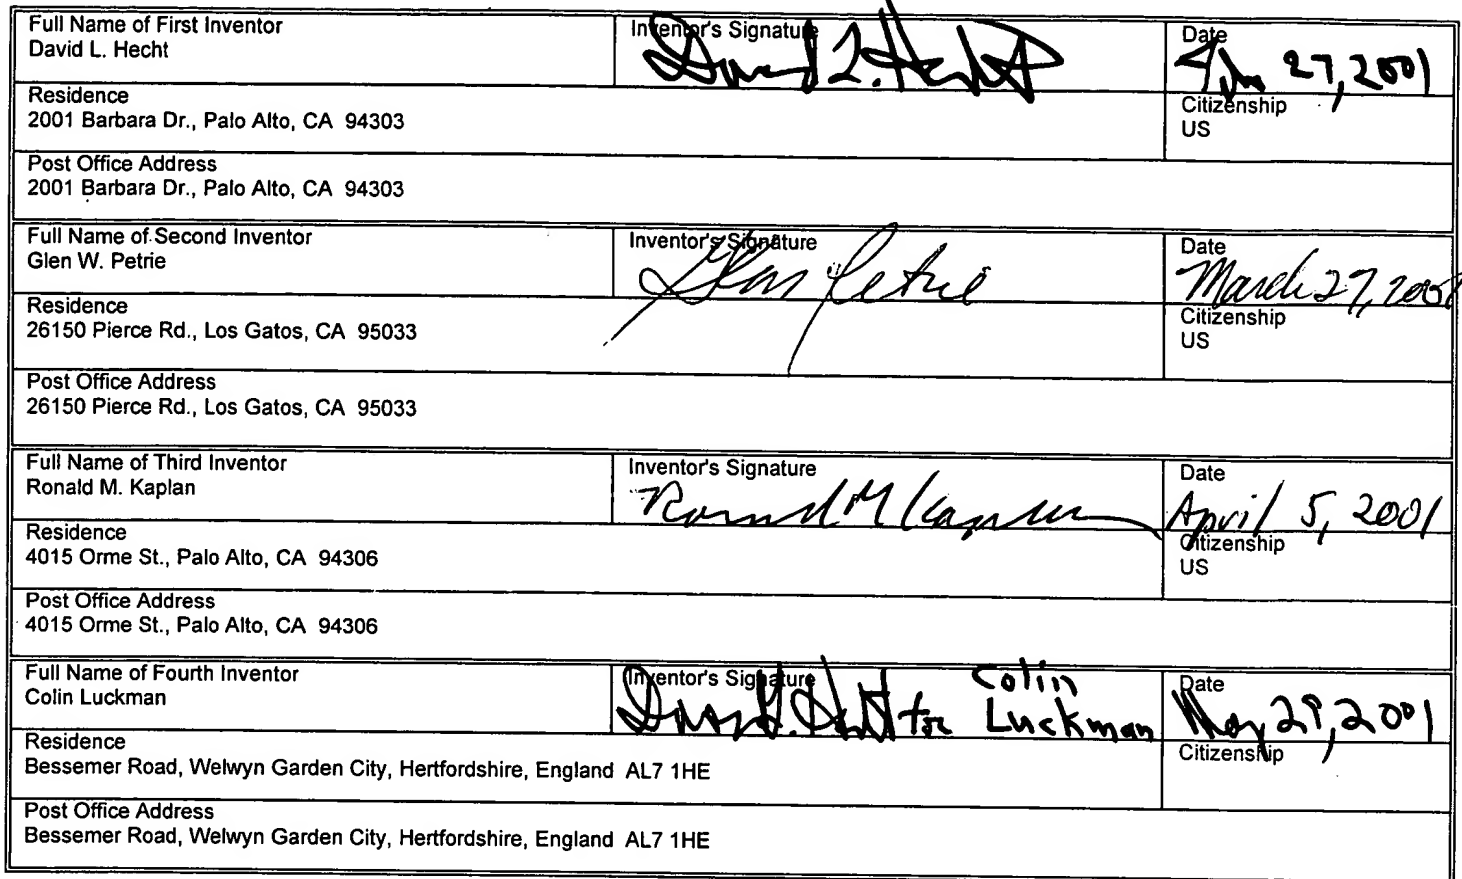 Full Name of First Inventor
David L. Hecht
Inventor's Signature
David L. Hecht
Date
27, 2001
Residence
2001 Barbara Dr., Palo Alto, CA 94303
Citizenship
US
Post Office Address
2001 Barbara Dr., Palo Alto, CA 94303
Full Name of Second Inventor
Glen W. Petrie
Inventor's Signature
Glen Petrie
Date
March 27, 2001
Residence
26150 Pierce Rd., Los Gatos, CA 95033
Citizenship
US
Post Office Address
26150 Pierce Rd., Los Gatos, CA 95033
Full Name of Third Inventor
Ronald M. Kaplan
Inventor's Signature
Ronald M Kaplan
Date
April 5, 2001
Residence
4015 Orme St., Palo Alto, CA 94306
Citizenship
US
Post Office Address
4015 Orme St., Palo Alto, CA 94306
Full Name of Fourth Inventor
Colin Luckman
Inventor's Signature
David L. Hecht for Colin Luckman
Date
May 29, 2001
Residence
Bessemer Road, Welwyn Garden City, Hertfordshire, England AL7 1HE
Citizenship
Post Office Address
Bessemer Road, Welwyn Garden City, Hertfordshire, England AL7 1HE